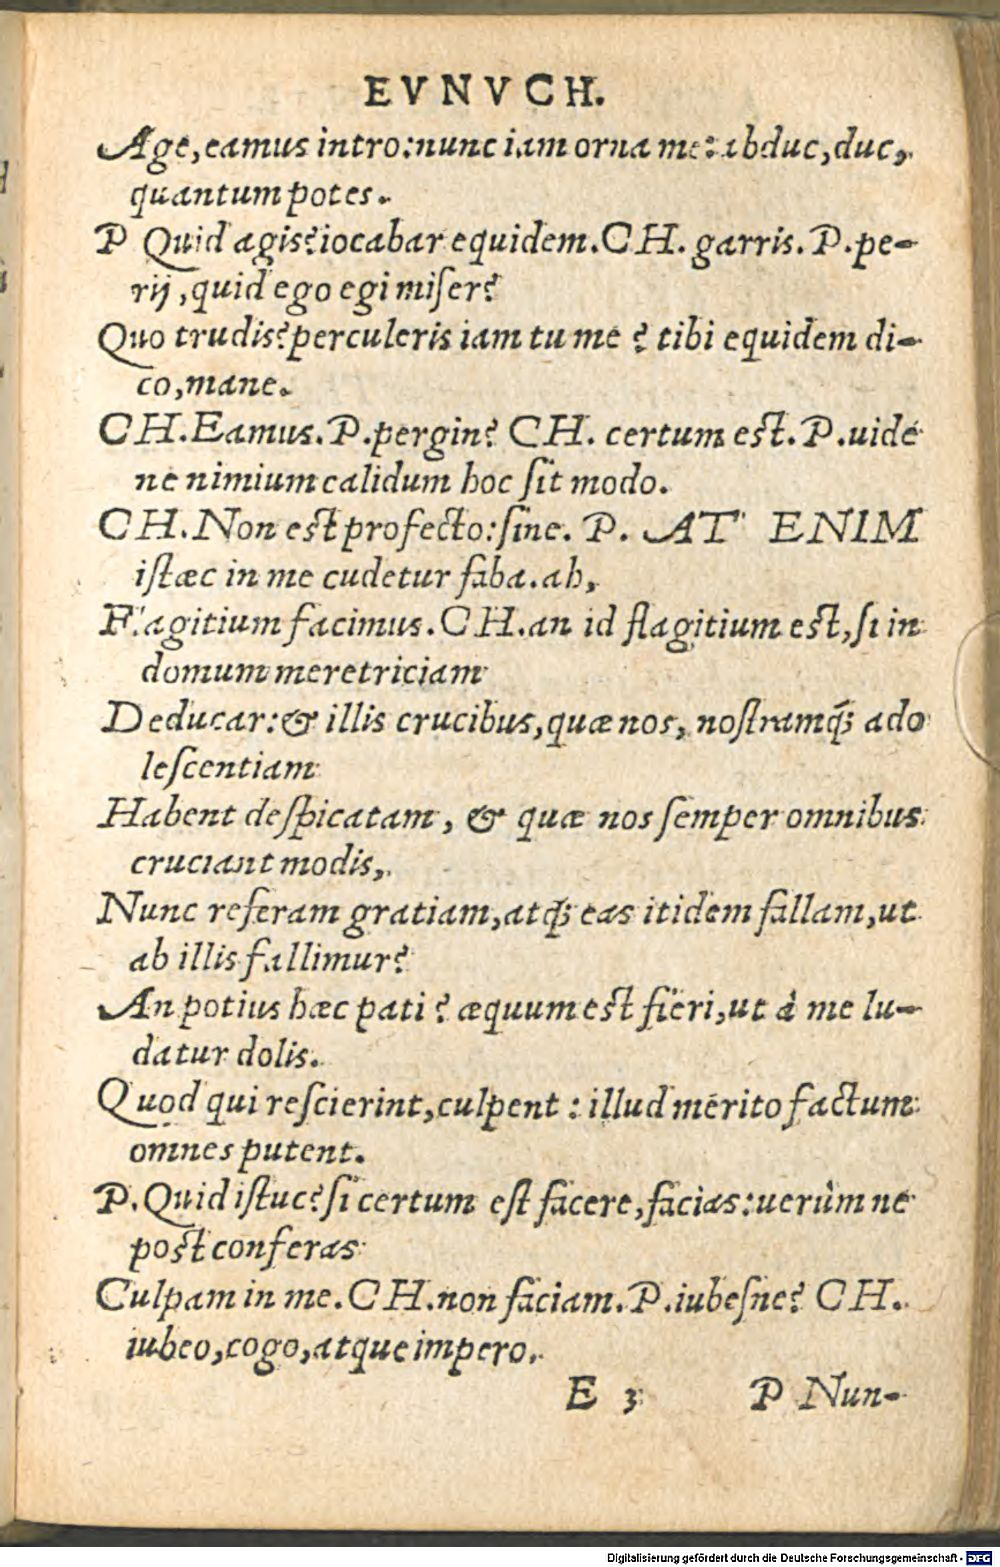 EVNVCH.
Age, eamus intro: nunc iam orna me: abduc, duc,
quantum potes.
P Quid agis? iocabar equidem. CH. garris. P. pe-
rij, quid ego egi miser?
Quo trudis? perculeris iam tu me ? tibi equidem di-
co, mane.
CH. Eamus. P. pergin? CH. certum est. P. uide
ne nimium calidum hoc ſit modo.
CH. Non est profecto: ſine. P. AT ENIM
iſtæc in me cudetur faba. ah,
Flagitium facimus. CH. an id flagitium est, ſi in
domum meretriciam
Deducar: & illis crucibus, quæ nos, noſtramq́; ado
leſcentiam
Habent deſpicatam, & quæ nos ſemper omnibus
cruciant modis,
Nunc referam gratiam, atq; eas itidem fallam, ut
ab illis fallimur?
An potius hæc pati ? æquum est fieri, ut à me lu-
datur dolis.
Quod qui reſcierint, culpent : illud merito factum
omnes putent.
P. Quid iſtuc? ſi certum eſt facere, facias: uerùm ne
post conferas
Culpam in me. CH. non faciam. P. iubeſne? CH.
iubeo, cogo, atque impero.
E 3 P Nun-
Digitalisierung gefördert durch die Deutsche Forschungsgemeinschaft - DFG